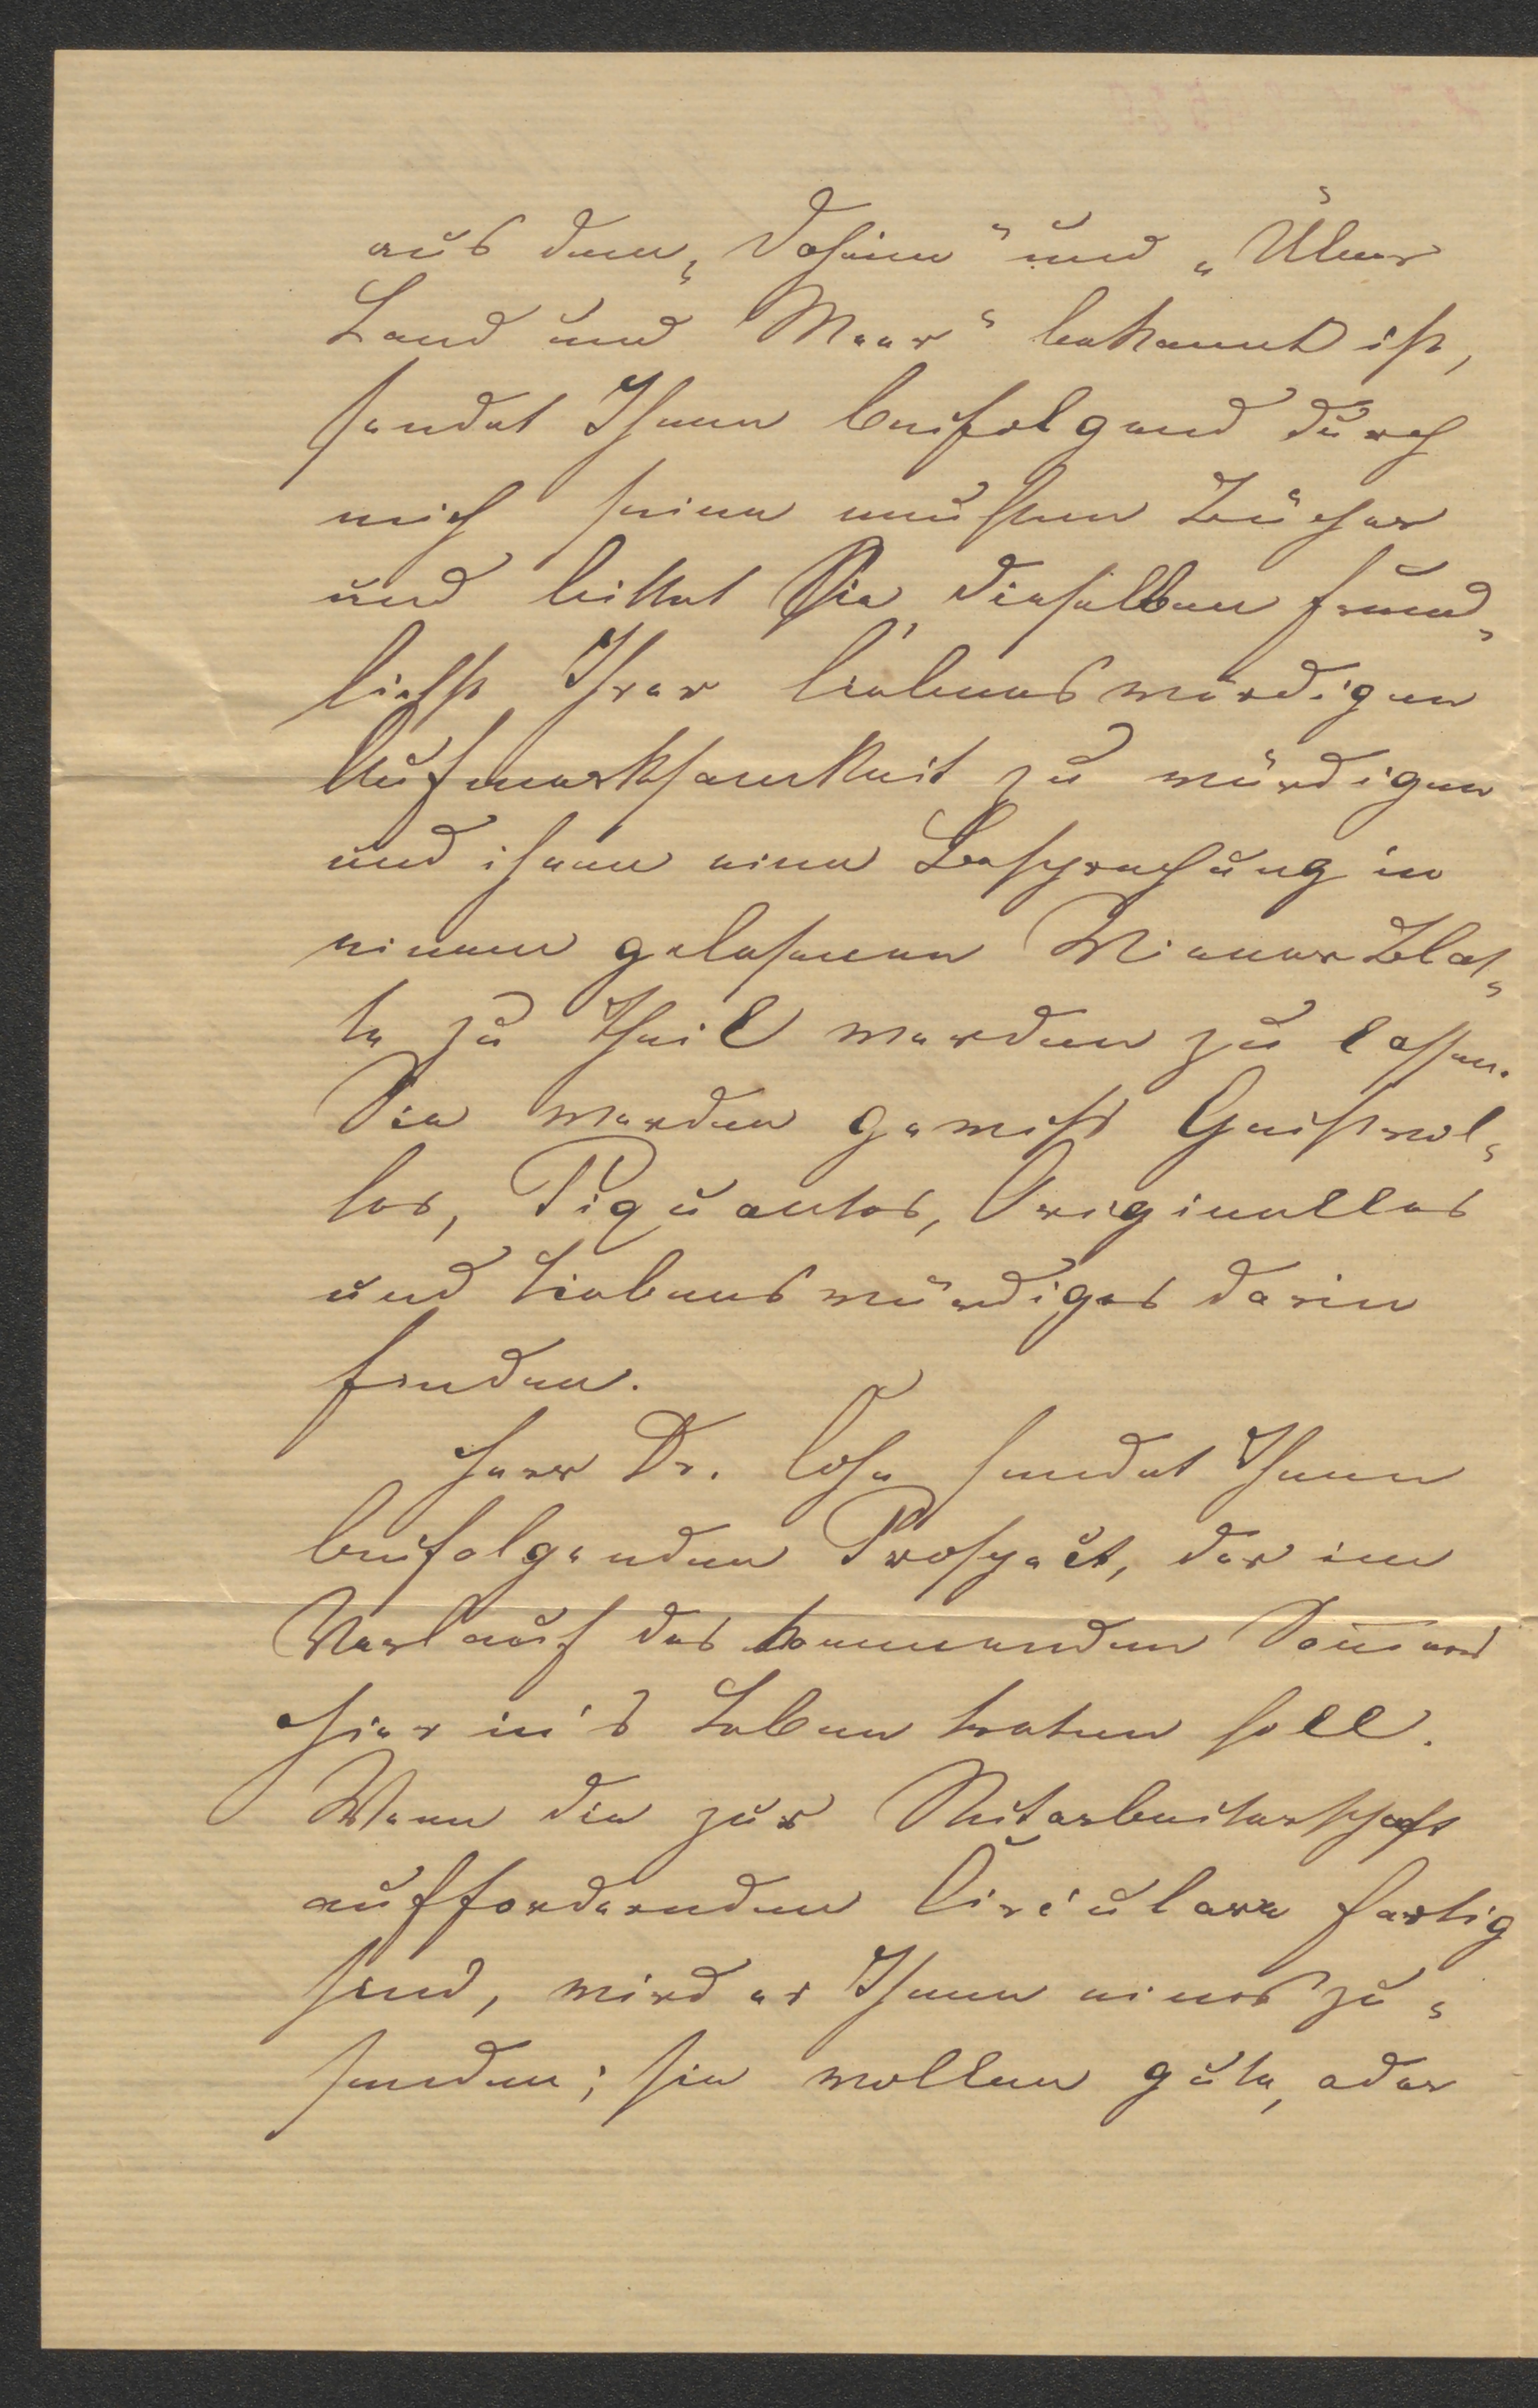 aus dem „Daheim“ und „Über
Land und Meer“ bekannt ist,
sendet Ihnen beifolgend durch
mich seine neusten Bücher
und bittet Sie, dieselben freund-
lichst Ihrer liebenswürdigen
Aufmerksamkeit zu würdigen
und ihnen eine Besprechung in
einem gelesenen Wiener Blat-
te zu Theil werden zu lassen.
Sie werden gewiß Geistvol-
les, Piquantes, Originelles
und Liebenswürdiges darin
finden.
Herr Dr. sendet Ihnen
beifolgenden Prospect, der im
Verlauf des kommenden
hier in's Leben treten soll.
Wenn die zur Mitarbeiterschaft
auffordernden Circulare fertig
sind, wird er Ihnen eines zu-
senden; sie wollen gute, oder